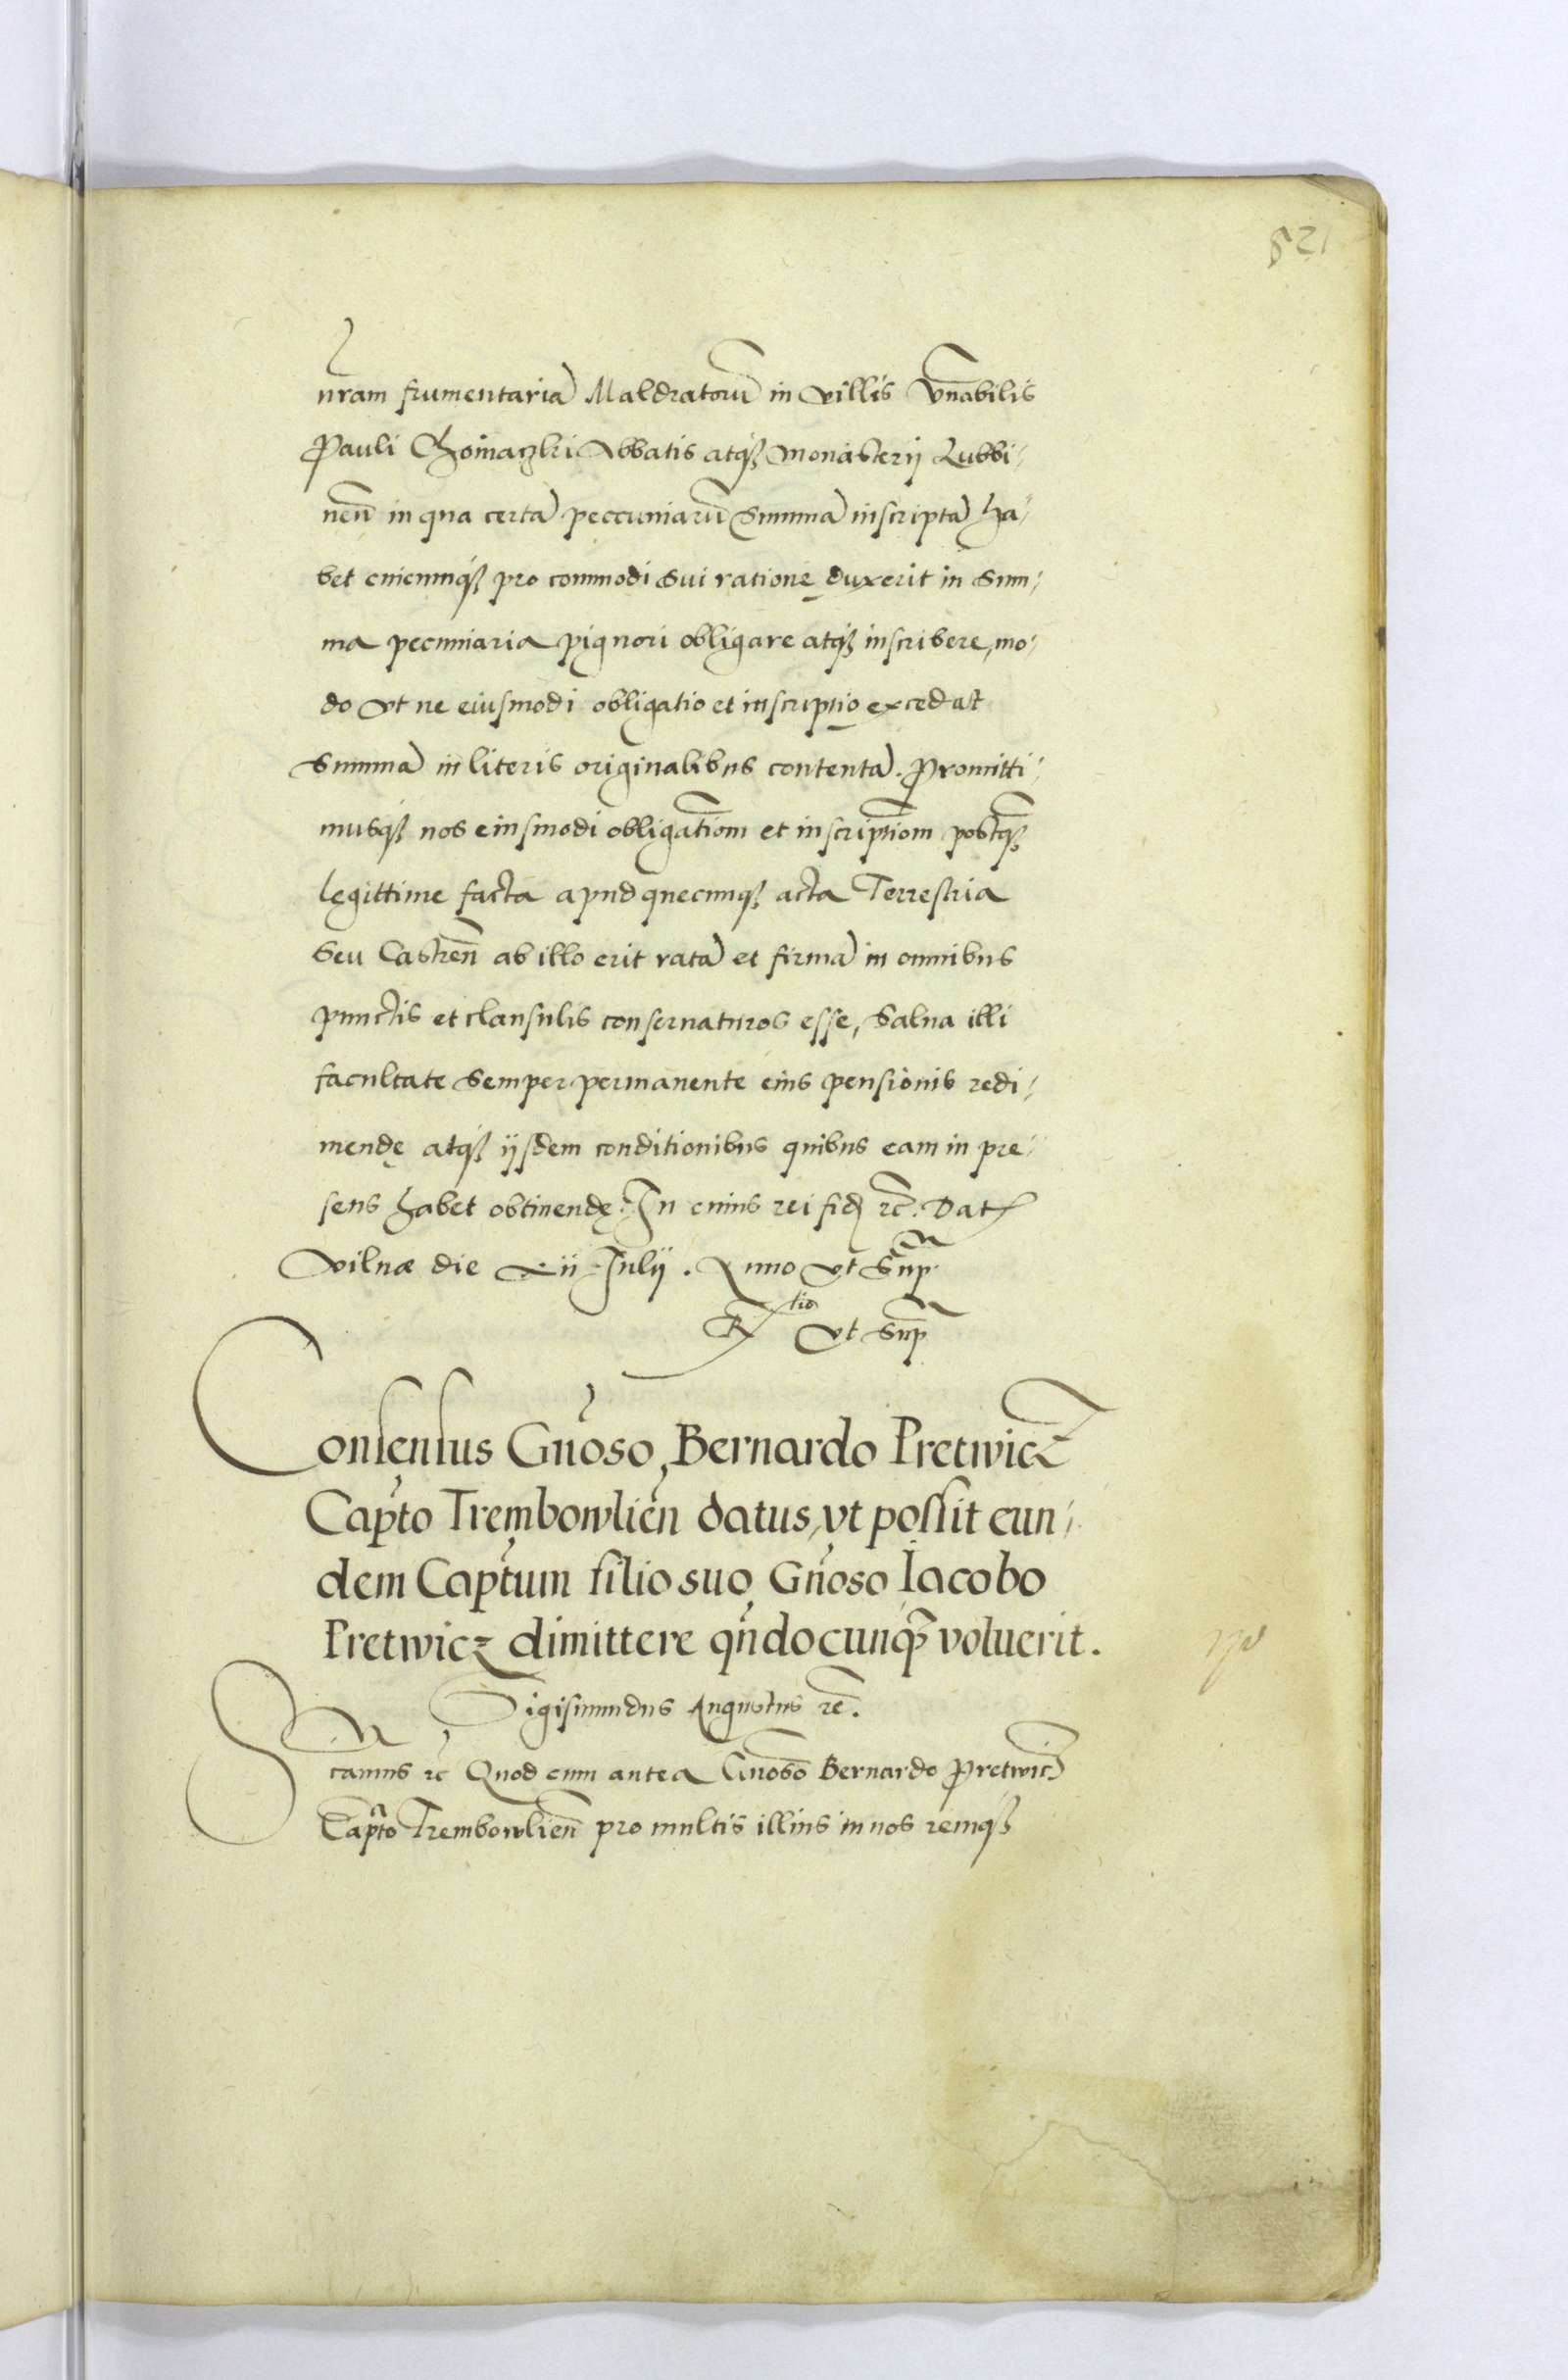 821
nr̃am frumentariã Maldratorũ in villis Vñabilis
Pauli Chojnaczki Abbatis atq3 monasterij Lubbi⸗
neñ in qua certã peccuniarũ Summã inscriptã ha⸗
bet cuicunq3 pro commodi sui ratione duxerit in Sum⸗
ma pecuniaria pignori obligare atq3 inscribere, mo⸗
do vt ne eiusmodi obligatio et inscriptio excedat
Summã in literis originalibus contentã. Promitti⸗
musq3 nos eiusmodi obligat̃iom et inscript̃iom postq̃3
legittime facta apud quecunq3 acta Terrestria
Seu Castreñ ab illo erit ratã et firmã in omnibus
punctis et clausulis conseruaturos esse, Salua illi
facultate semper permanente eius pensionis redi⸗
mendę atq3 ijsdem conditionibus quibus eam in pre⸗
sens habet obtinendę. In cuius rei fid rc̃. Dat
Vilnæ die xii Iulij. Anno vt Sup̃.
R tio vt Sup̃
Consensus Gñoso Bernardo Pretwicz
Cap̃to Trembowlieñ datus, vt possit eun⸗
dem Cap̃tum filio suo Gñoso Iacobo
Pretwicz dimittere qñdocunq3 voluerit.
Sigismundus Augustus rc̃.
S camus rc̃ Quod cum antea Gñoso Bernardo Pretwicz
Cap̃to Trembowlieñ pro multis illius in nos remq3